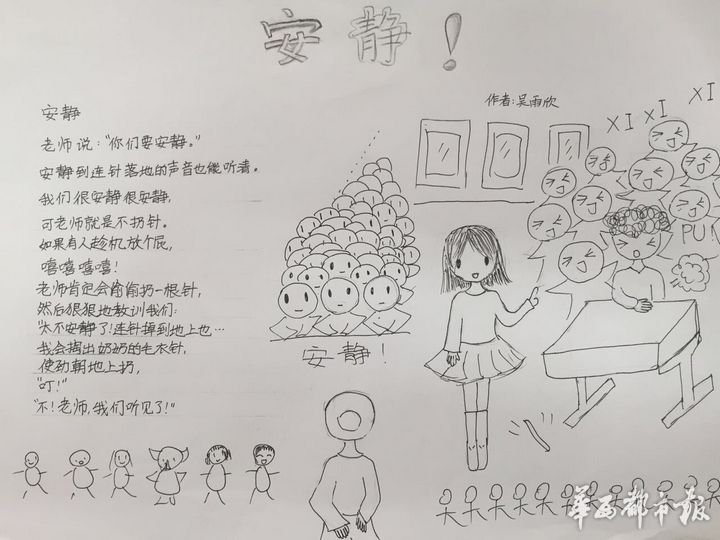 安静!
作者:吴雨欣
安静
老师说:"你们要安静。"
安静到连针落地的声音也能听清。
我们很安静很安静,
可老师就是不扔针。
如果有人趁机放个屁,
嘻嘻嘻嘻!
老师肯定会偷偷扔一根针,
然后狠狠地教训我们:
"太不安静了!连针掉到地上也…
我会掏出奶奶的毛衣针,
使劲朝地上扔,
"叮!"
"不!老师,我们听见了!"
安静!
XI XI XI
PU!
华西都市报